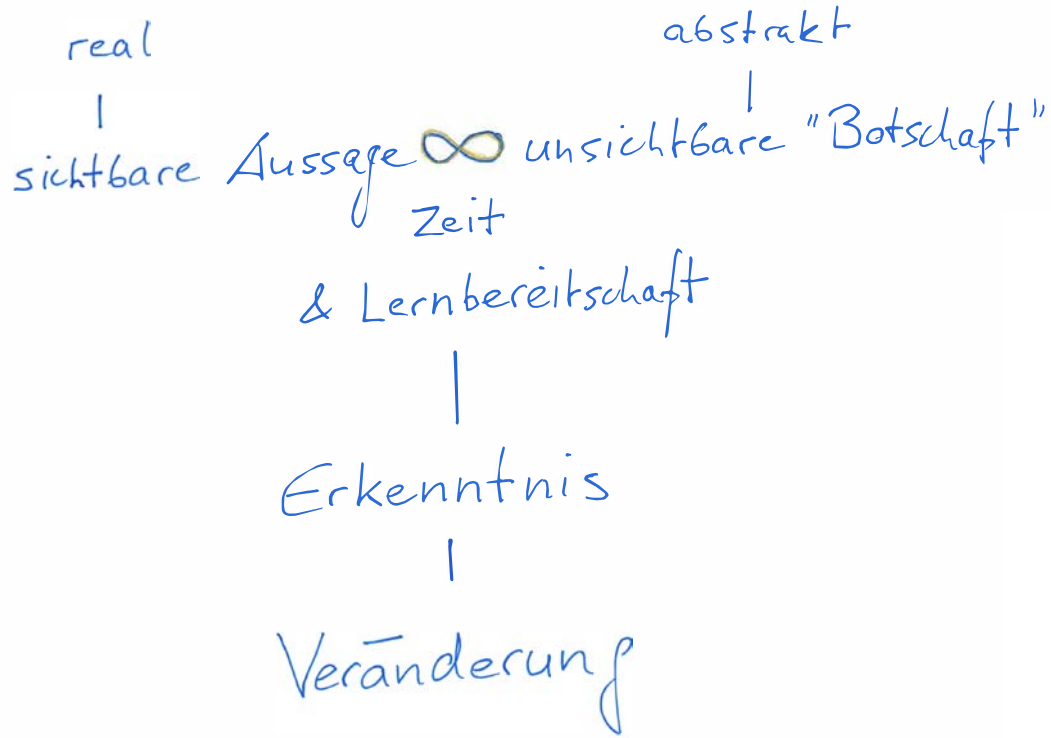 real abstrakt
sichtbare Aussage ∞ unsichtbare "Botschaft"
Zeit
& Lernbereitschaft
Erkenntnis
Veränderung